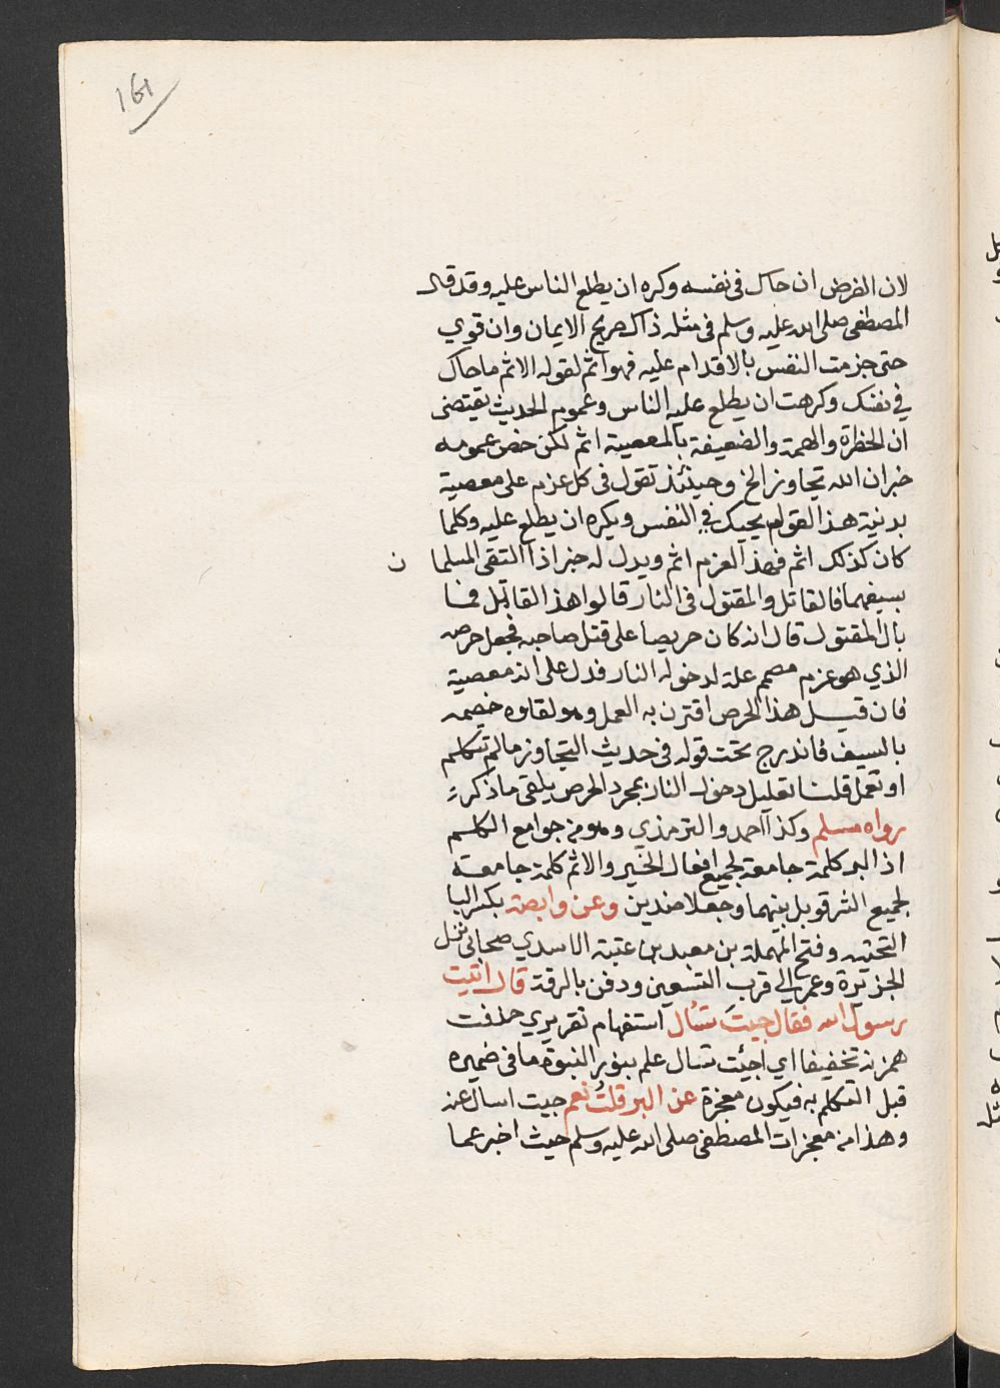 161
لان الفرض ان حاك في نفسه وكره ان يطلع الناس عليه وقد قال
المصطفى صلى الله عليه وسلم في مثله ذاك صريح الايمان وان قوي
حتى جزمت النفس بالاقدام عليه فهو اثم لقوله الاثم ما حاك
في نفسك وكرهت ان يطلع عليه الناس وعموم الحديث يقتضى
ان الخطرة والهمة والضعيفة بالمعصية اثم لكن خص عمومه
خبر ان الله تجاوز الخ وحينئذ تقول فى كل عزم على معصية
بدنية هذا القوام يحيك في النفس ويكره ان يطلع عليه وكلما
كان كذلك اثم فهذا العزم اثم ويدل له خبر اذا التقى المسلما ن
بسيفهما فالقاتل والمقتول فى النار قالوا هذا القاتل فما
بال المقتول قال انه كان حريصا على قتل صاحبه فجعل حرصه
الذي هو عزم مصمم علة لدخوله النار فدل على انه معصية
فان قيل هذا الحرص اقترن به العمل وهو لقاوه خصمه
بالسيف فاندرج تحت قوله فى حديث التجاوز ما لم تتكلم
او تعمل قلنا تعليل دخول النار بمجرد الحرص يلقى ما ذكر
رواه مسلم وكذا احمد والترمذي وهو من جوامع الكلم
اذ البر كلمة جامعة لجميع افعال الخير والاثم كلمة جامعة
لجميع الشر قوبل بينهما وجعلا ضدين وعن وابصة بكسر البا
التحتيه وفتح المهملة بن معبد بن عتبة الاسدي صحابى نزل
الجزيرة وعمر الى قرب التسعين ودفن بالرقة قال اتيت
رسول الله فقال جيتَ تسُال استفهام تقريري حذفت
همزته تخفيفا اي اجئت تسال علم بنور النبوة ما فى ضميره
قبل التكلم به فيكون معجزة عن البر قلتُ نعم جيت اسال عنه
وهذا من معجزات المصطفى صلى الله عليه وسلم حيث اخبر عما